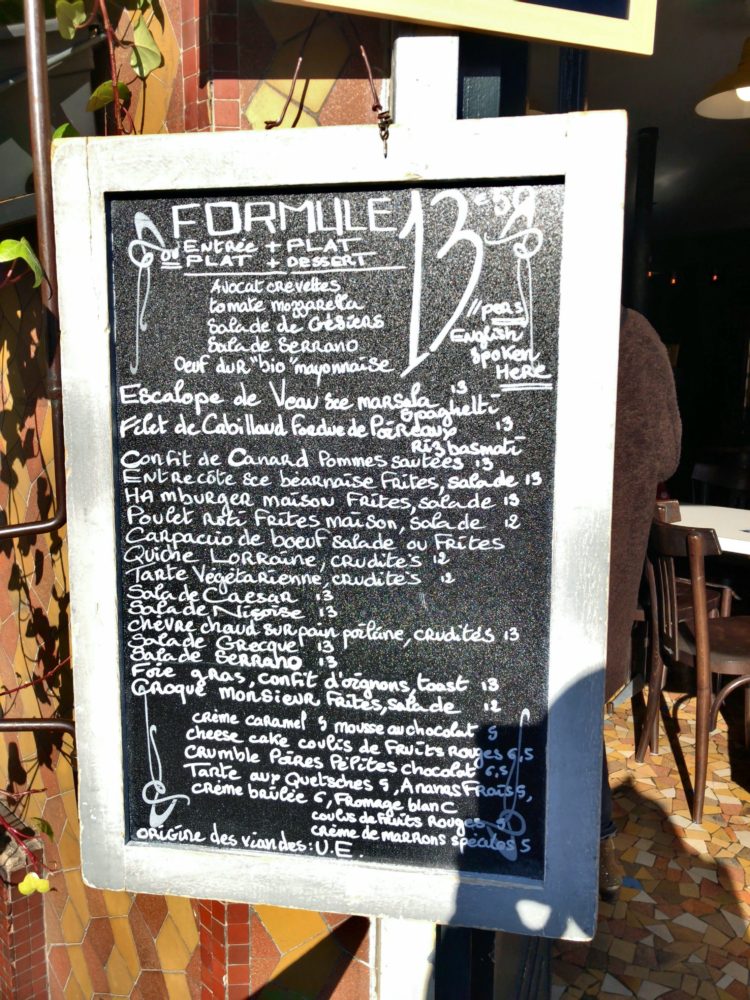 FORMULE 13
ou Entrée + PLAT
PLAT + DESSERT
Avocat crevettes
tomate mozzarella
Salade de Gésiers
Salade Serrano
Oeuf dur "bio" mayonnaise
//pers
English
spoken
Here
Escalope de Veau sce marsala 13
spaghetti
Filet de Cabillaud fondue de Poireaux 13
Riz basmati
Confit de Canard Pommes sautées 13
Entrecôte sce bearnaise Frites, salade 13
Hamburger maison Frites, salade 13
Poulet rôti Frites maison, salade 12
Carpaccio de boeuf salade ou Frites
Quiche Lorraine, crudités 12
Tarte Vegetarienne, crudités 12
Salade Caesar 13
Salade Niçoise 13
chèvre chaud sur pain poilâne, crudités 13
Salade Grecque 13
Salade Serrano 13
Foie gras, confit d'oignons, toast 13
Croque Monsieur Frites, salade 12
crème caramel 5 mousse au chocolat 5
cheese cake coulis de Fruits Rouges 6,5
Crumble Poires Pépites chocolat 6,5
Tarte aux Quetsches 5, Ananas Frais 5,
crème brûlée 6, Fromage blanc
coulis de Fruits Rouges, 5
crème de marrons speculos 5
origine des viandes: U.E.